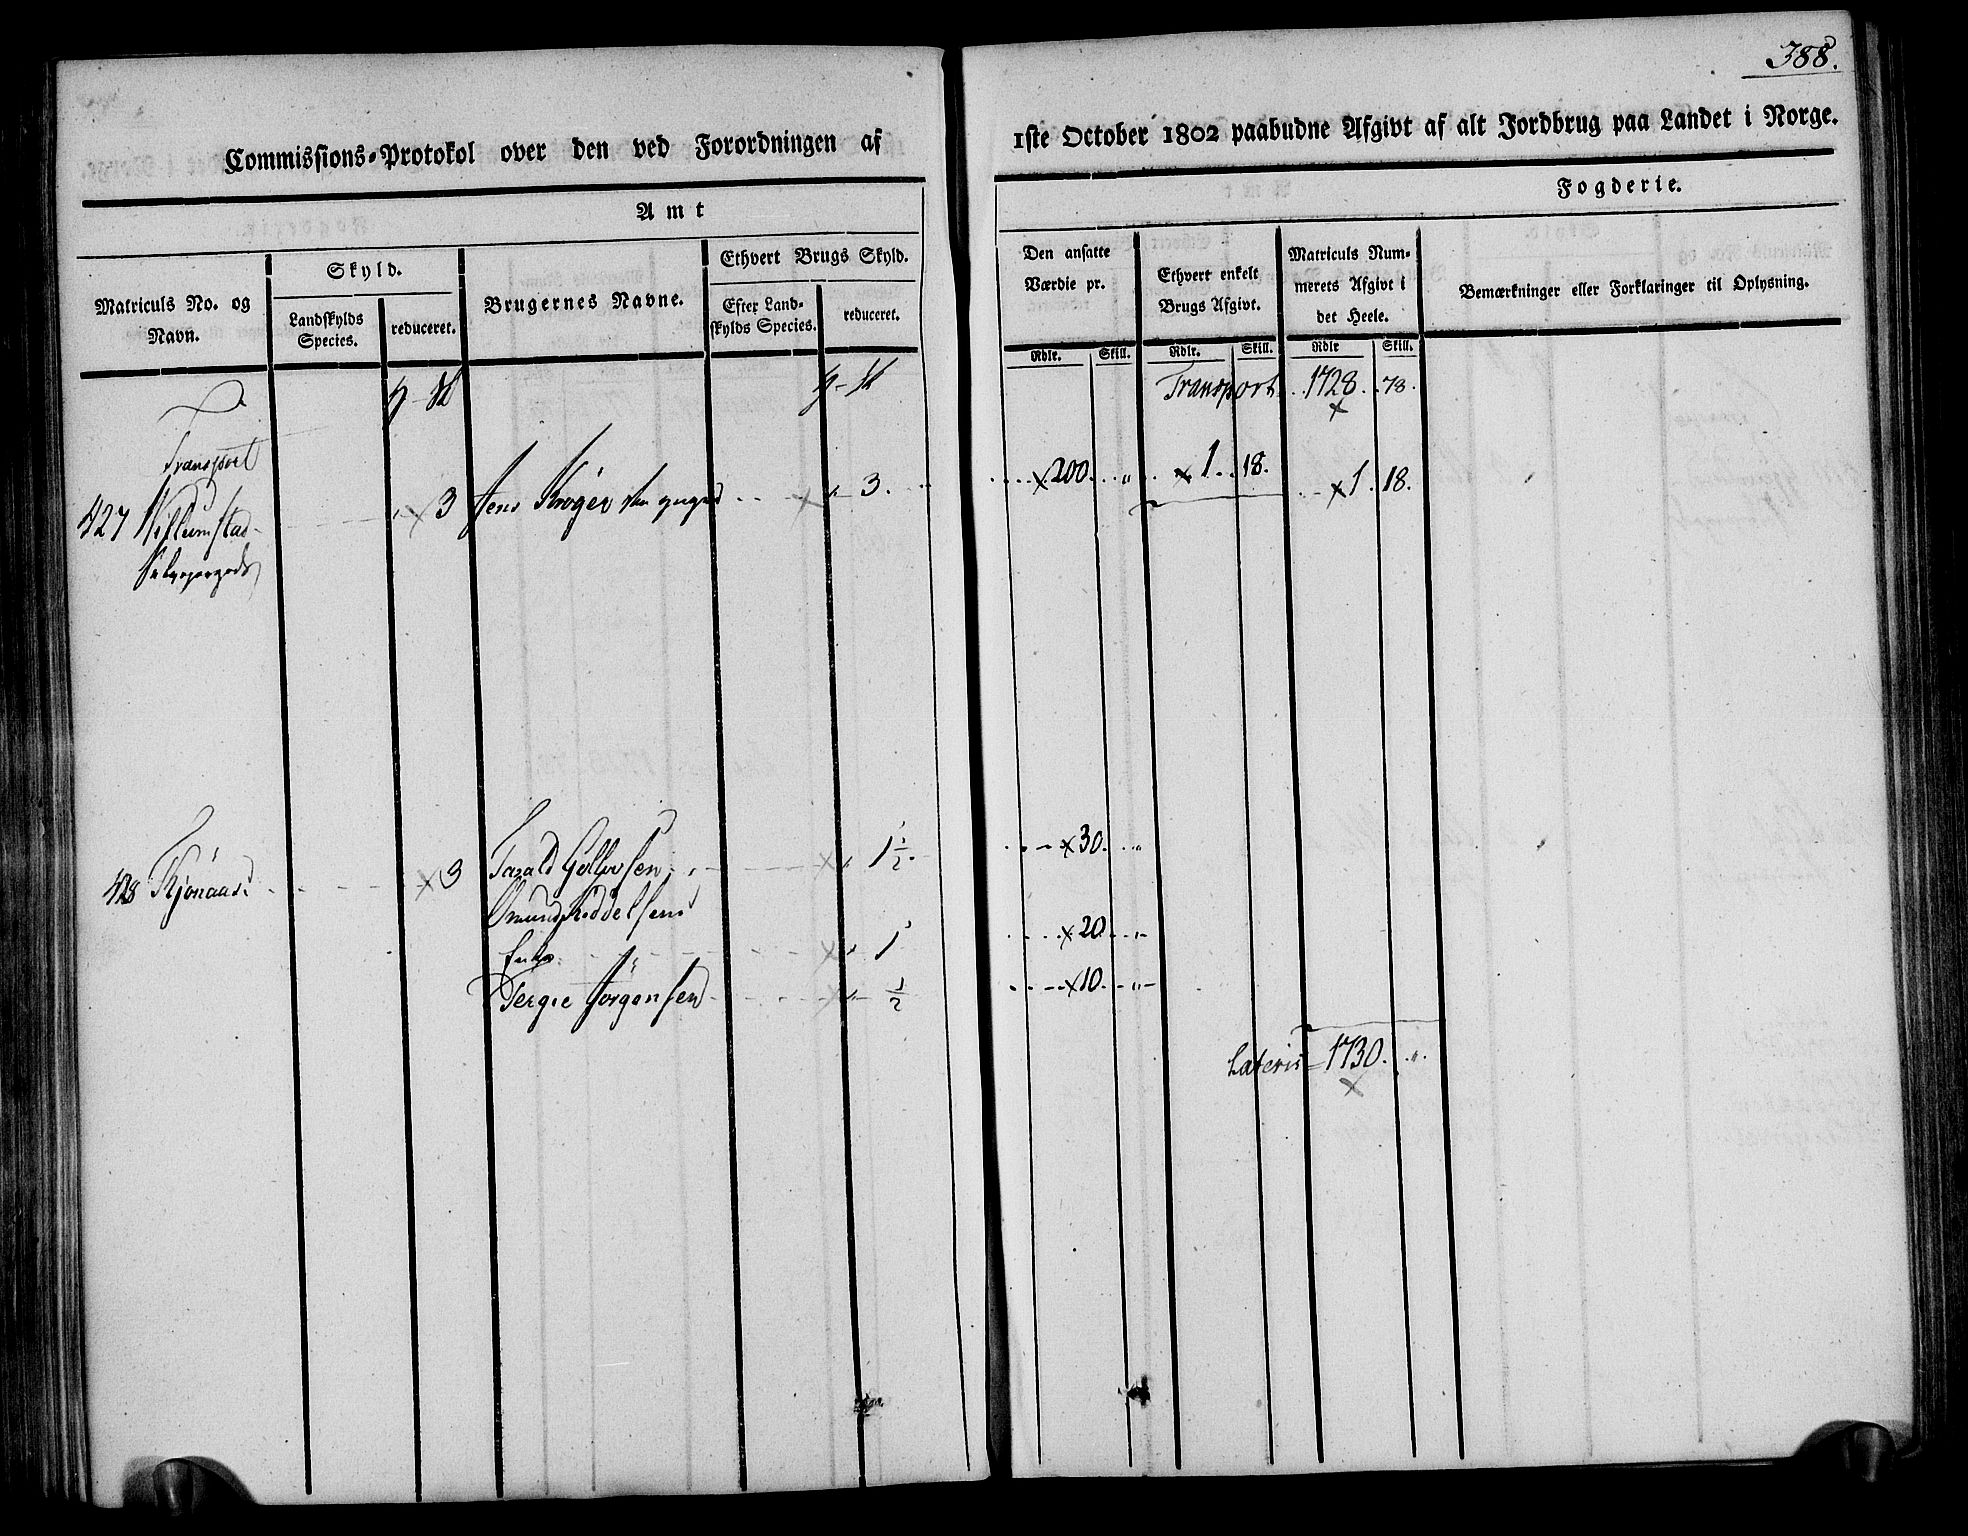 388.
Commissions-Protokol over den ved Forordningen af
1ste October 1802 paabudne Afgivt af alt Jordbrug paa Landet i Norge.
Amt
Fogderie.
Matriculs No. og Navn.
Skyld.
Landskylds Species.
reduceret.
Brugernes Navne.
Ethvert Brugs Skyld.
Efter Landskylds Species.
reduceret.
Den ansatte Værdie pr.
Ethvert enkelt Brugs Afgivt.
Matriculs Nummerets Afgivt i det Heele.
Bemærkninger eller Forklaringer til Oplysning.
Rdlr. Skill. Rdlr. Skill. Rdlr Skill.
Transport 1728. 78.
Transport
427 Willumstad 3 Jens Krøger 3. 200. " 1. 18. 1. 18.
428 Kjønaas 3 Tarald Gullovsen 1 1/2. 30. "
Omund Keddelsens
Enke 1 20. "
Tergie Jörgensen 1/2 10. "
Lateris 1730. "